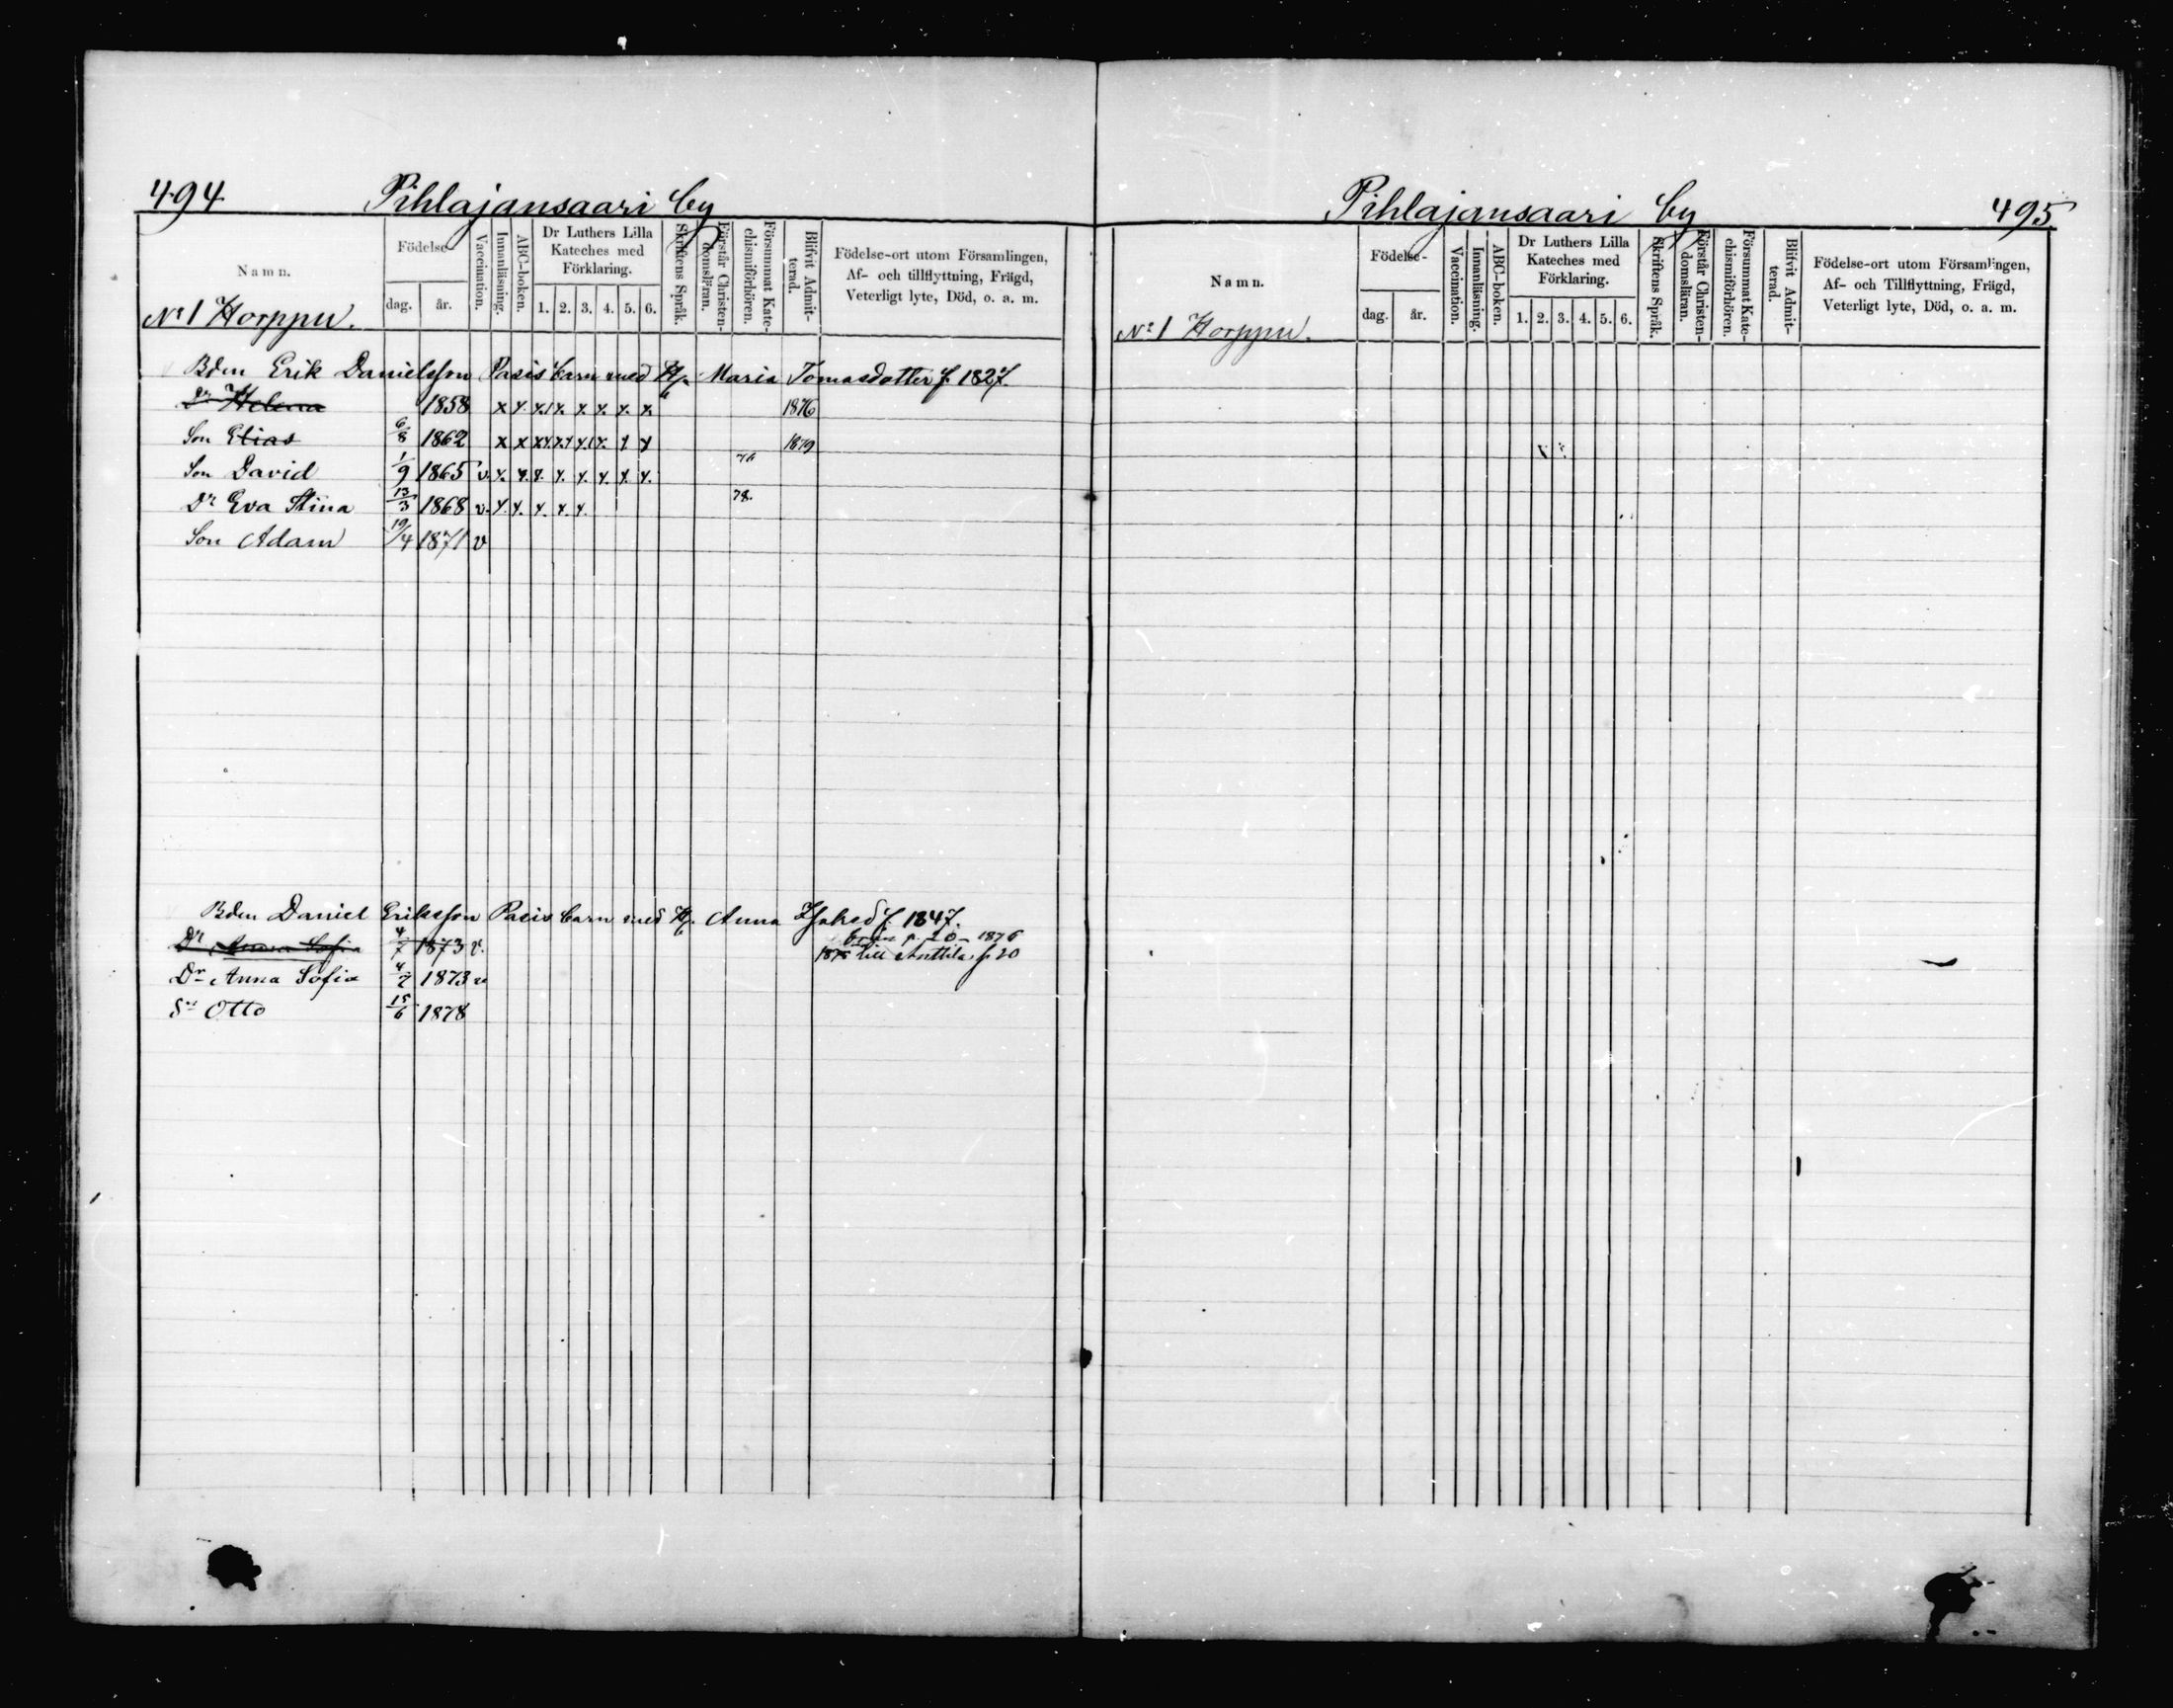 494
Pihlajansaari by
Namn.
Födelse-
dag.
år.
Vaccination.
Innanläsning.
ABC-boken.
Dr Luthers Lilla
Kateches med
Förklaring.
1. 2. 3. 4. 5. 6.
Skriftens Språk.
Förstår Christen-
domsläran.
Försummat Kate-
chismiförhören.
Blifvit Admit-
terad.
Födelse-ort utom Församlingen,
Af- och tillflyttning, Frägd,
Veterligt lyte, Död, o. a. m.
No 1 Horppu.
Bden Erik Danielsson Pasis barn med H. Maria Tomasdotter f. 1827.
Dr Helena 1858 x x. x. x. x. x. x. x. 1876
Son Elias 6/8 1862 x x x x x x x x 1879
Son David 1/9 1865 v. x. x. x. x. x. x. x. x. 76
Dr Eva Stina 13/3 1868 v. x. x. x. x. x. 78.
Son Adam 19/4 1871 v
Bden Daniel Eriksson Pasis barn med H. Anna Isaksd f. 1847.
Dr Anna Sofia 4/7 1873 v. p. 20 1876
1875 till Anttila p 20
Dr Anna Sofia 4/7 1873 v
Sn Otto 15/6 1878
Pihlajansaari by
495
Namn.
Födelse-
dag.
år.
Vaccination.
Innanläsning.
ABC-boken.
Dr Luthers Lilla
Kateches med
Förklaring.
1. 2. 3. 4. 5. 6.
Skriftens Språk.
Förstår Christen-
domsläran.
Försummat Kate-
chismiförhören.
Blifvit Admit-
terad.
Födelse-ort utom Församlingen,
Af- och Tillflyttning, Frägd,
Veterligt lyte, Död, o. a. m.
No 1 Horppu.